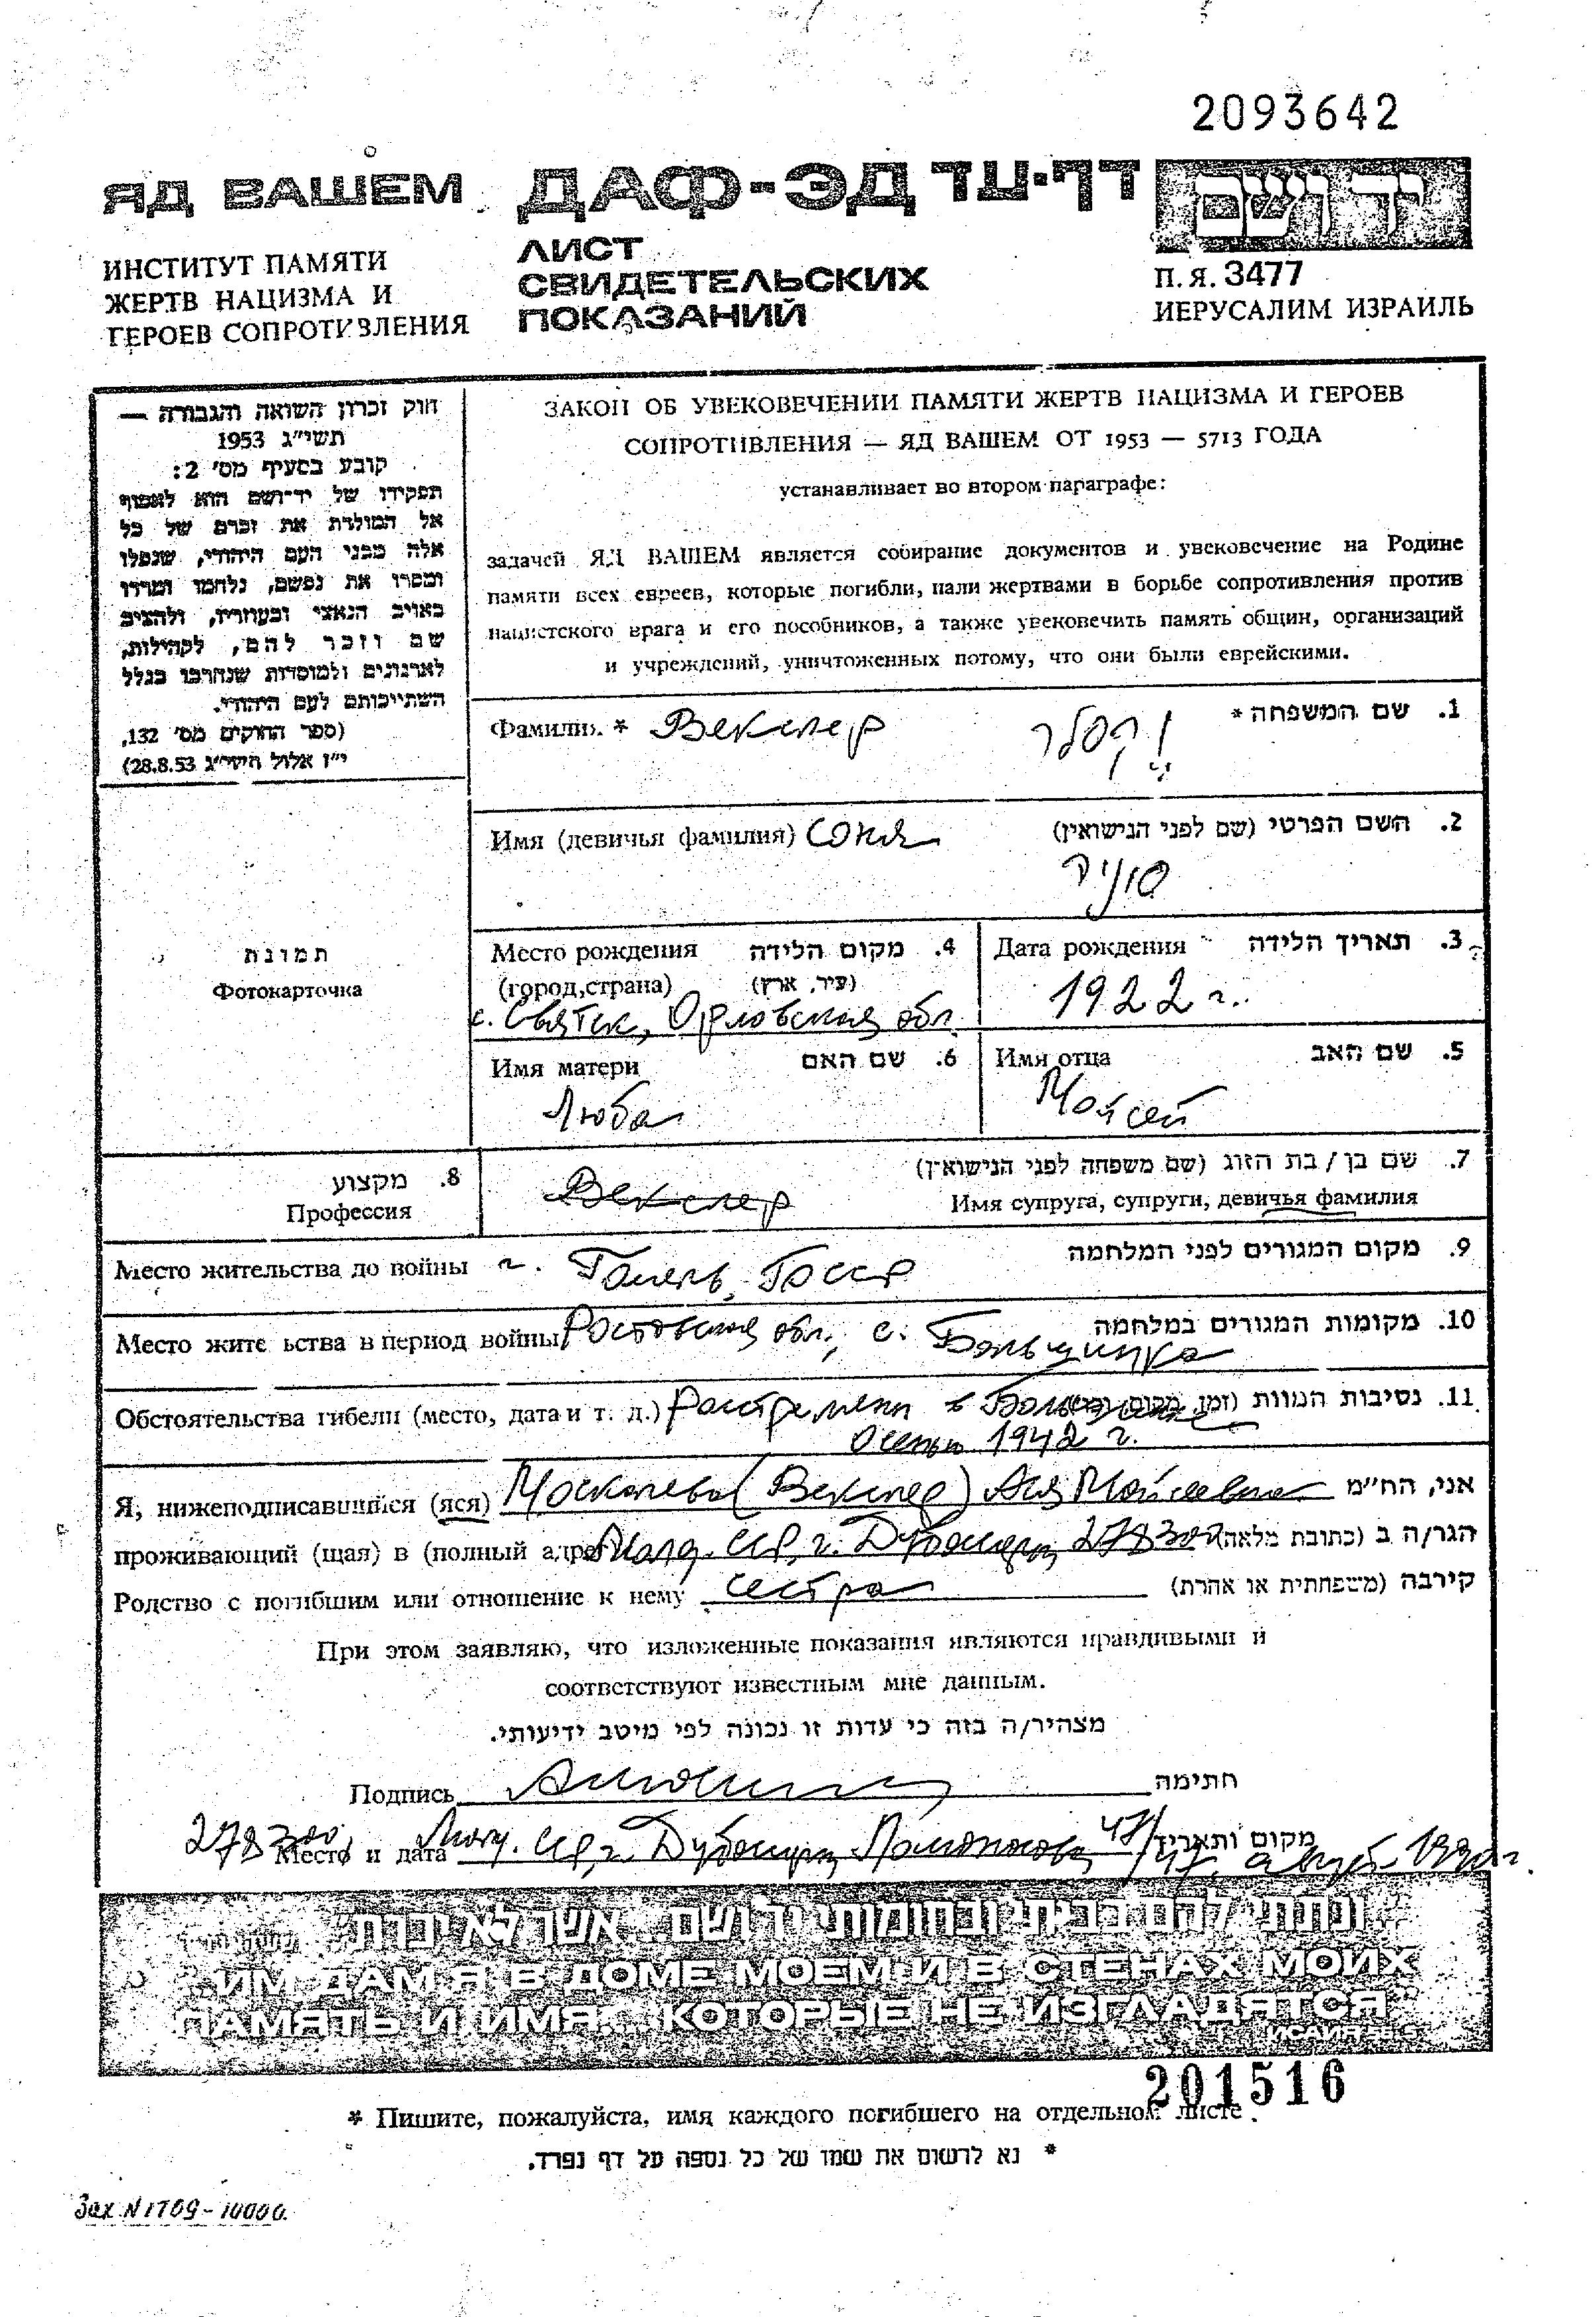 2093642
ЯД ВАШЕМ
ДАФ-ЭД דף-עד
יד ושם
ИНСТИТУТ ПАМЯТИ
ЖЕРТВ НАЦИЗМА И
ГЕРОЕВ СОПРОТИВЛЕНИЯ
ЛИСТ
СВИДЕТЕЛЬСКИХ
ПОКАЗАНИЙ
П. Я. 3477
ИЕРУСАЛИМ ИЗРАИЛЬ
חוק זכרון השואה והגבורה —
תשי״ג 1953
קובע בסעיף מס׳ 2:
תפקידו של יד־ושם הוא לאסוף
אל המולדת את זכרם של כל
אלה מבני העם היהודי, שנפלו
ומסרו את נפשם, נלחמו ומרדו
באויב הנאצי ובעוזריו, ולהציב
שם וזכר להם, לקהילות,
לארגונים ולמוסדות שנחרבו בגלל
השתייכותם לעם היהודי.
(ספר החוקים מס׳ 132,
י״ז אלול תשי״ג 28.8.53)
ЗАКОН ОБ УВЕКОВЕЧЕНИИ ПАМЯТИ ЖЕРТВ НАЦИЗМА И ГЕРОЕВ
СОПРОТИВЛЕНИЯ — ЯД ВАШЕМ ОТ 1953 — 5713 ГОДА
устанавливает во втором параграфе:
задачей ЯД ВАШЕМ является собирание документов и увековечение на Родине
памяти всех евреев, которые погибли, пали жертвами в борьбе сопротивления против
нацистского врага и его пособников, а также увековечить память общин, организаций
и учреждений, уничтоженных потому, что они были еврейскими.
Фамилия * Векслер וקסלר 1. שם המשפחה *
Имя (девичья фамилия) Соня 2. השם הפרטי (שם לפני הנישואין)
סוניה
תמונה
Фотокарточка
Место рождения 4. מקום הלידה
(город, страна) (עיר, ארץ)
с. Святск, Орловская обл
Дата рождения 3. תאריך הלידה
1922 г.
Имя матери 6. שם האם
Люба
Имя отца 5. שם האב
Мойсей
8. מקצוע
Профессия
7. שם בן / בת הזוג (שם משפחה לפני הנישואין)
Векслер Имя супруга, супруги, девичья фамилия
Место жительства до войны г. Гомель, БССР 9. מקום המגורים לפני המלחמה
Место жите ьства в период войны Ростовская обл., с. Большинка 10. מקומות המגורים במלחמה
Обстоятельства гибели (место, дата и т. д.) Расстреляна в 11. נסיבות המוות (זמן, מקום
осенью 1942 г.
Я, нижеподписавшийся (яся) Москалева (Векслер) Ася Мойсеевна אני, הח״מ
проживающий (щая) в (полный адре Молд. ССР, г. Дубоссары 278300 הגר/ה ב (כתובת מלאה)
Родство с погибшим или отношение к нему сестра קירבה (משפחתית או אחרת)
При этом заявляю, что изложенные показания являются правдивыми и
соответствуют известным мне данным.
מצהיר/ה בזה כי עדות זו נכונה לפי מיטב ידיעותי.
Подпись חתימה
278300, Место и дата Молд. ССР, г. Дубоссары Ломоносова מקום ותאריך 1990 г.
"ונתתי להם בביתי ובחומותי יד ושם... אשר לא יכרת"
"ИМ ДАМ Я В ДОМЕ МОЕМ И В СТЕНАХ МОИХ
ПАМЯТЬ И ИМЯ... КОТОРЫЕ НЕ ИЗГЛАДЯТСЯ"
201516
* Пишите, пожалуйста, имя каждого погибшего на отдельном листе.
* נא לרשום את שמו של כל נספה על דף נפרד.
Зак N 1709-10000.